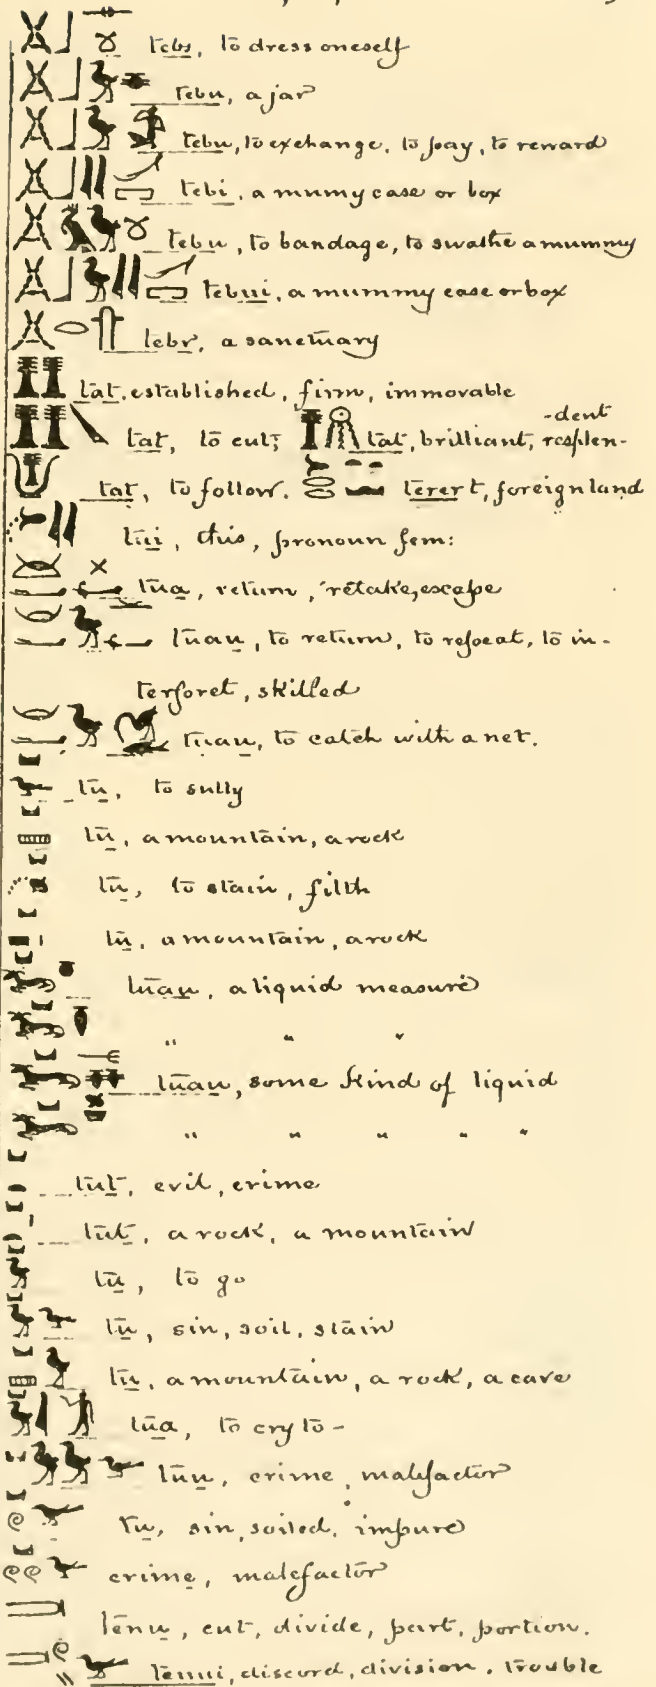 tebs, to dress oneself
tebu, a jar
tebu, to exchange, to pay, to reward
tebi, a mumy case or box
tebu, to bandage, to swathe a mummy
tebui, a mummy case or box
tebr, a sanctuary
tat, established, firm, immovable
tat, to cut; tat, brilliant, resplen-
-dent
tat, to follow. terert, foreign land
tui, this, pronoun fem:
tua, return, retake, escape
tuau, to return, to repeat, to in-
terpret, skilled
tuau, to catch with a net.
tu, to sully
tu, a mountain, a rock
tu, to stain, filth
tu, a mountain, a rock
tuau, a liquid measure
" " "
tuau, some kind of liquid
" " " " "
tut, evil, crime
tut, a rock, a mountain
tu, to go
tu, sin, soil, stain
tu, a mountain, a rock, a cave
tua, to cry to -
tuu, crime, malefactor
tu, sin, soiled, impure
crime, malefactor
tenu, cut, divide, part, portion.
tenui, discord, division. trouble